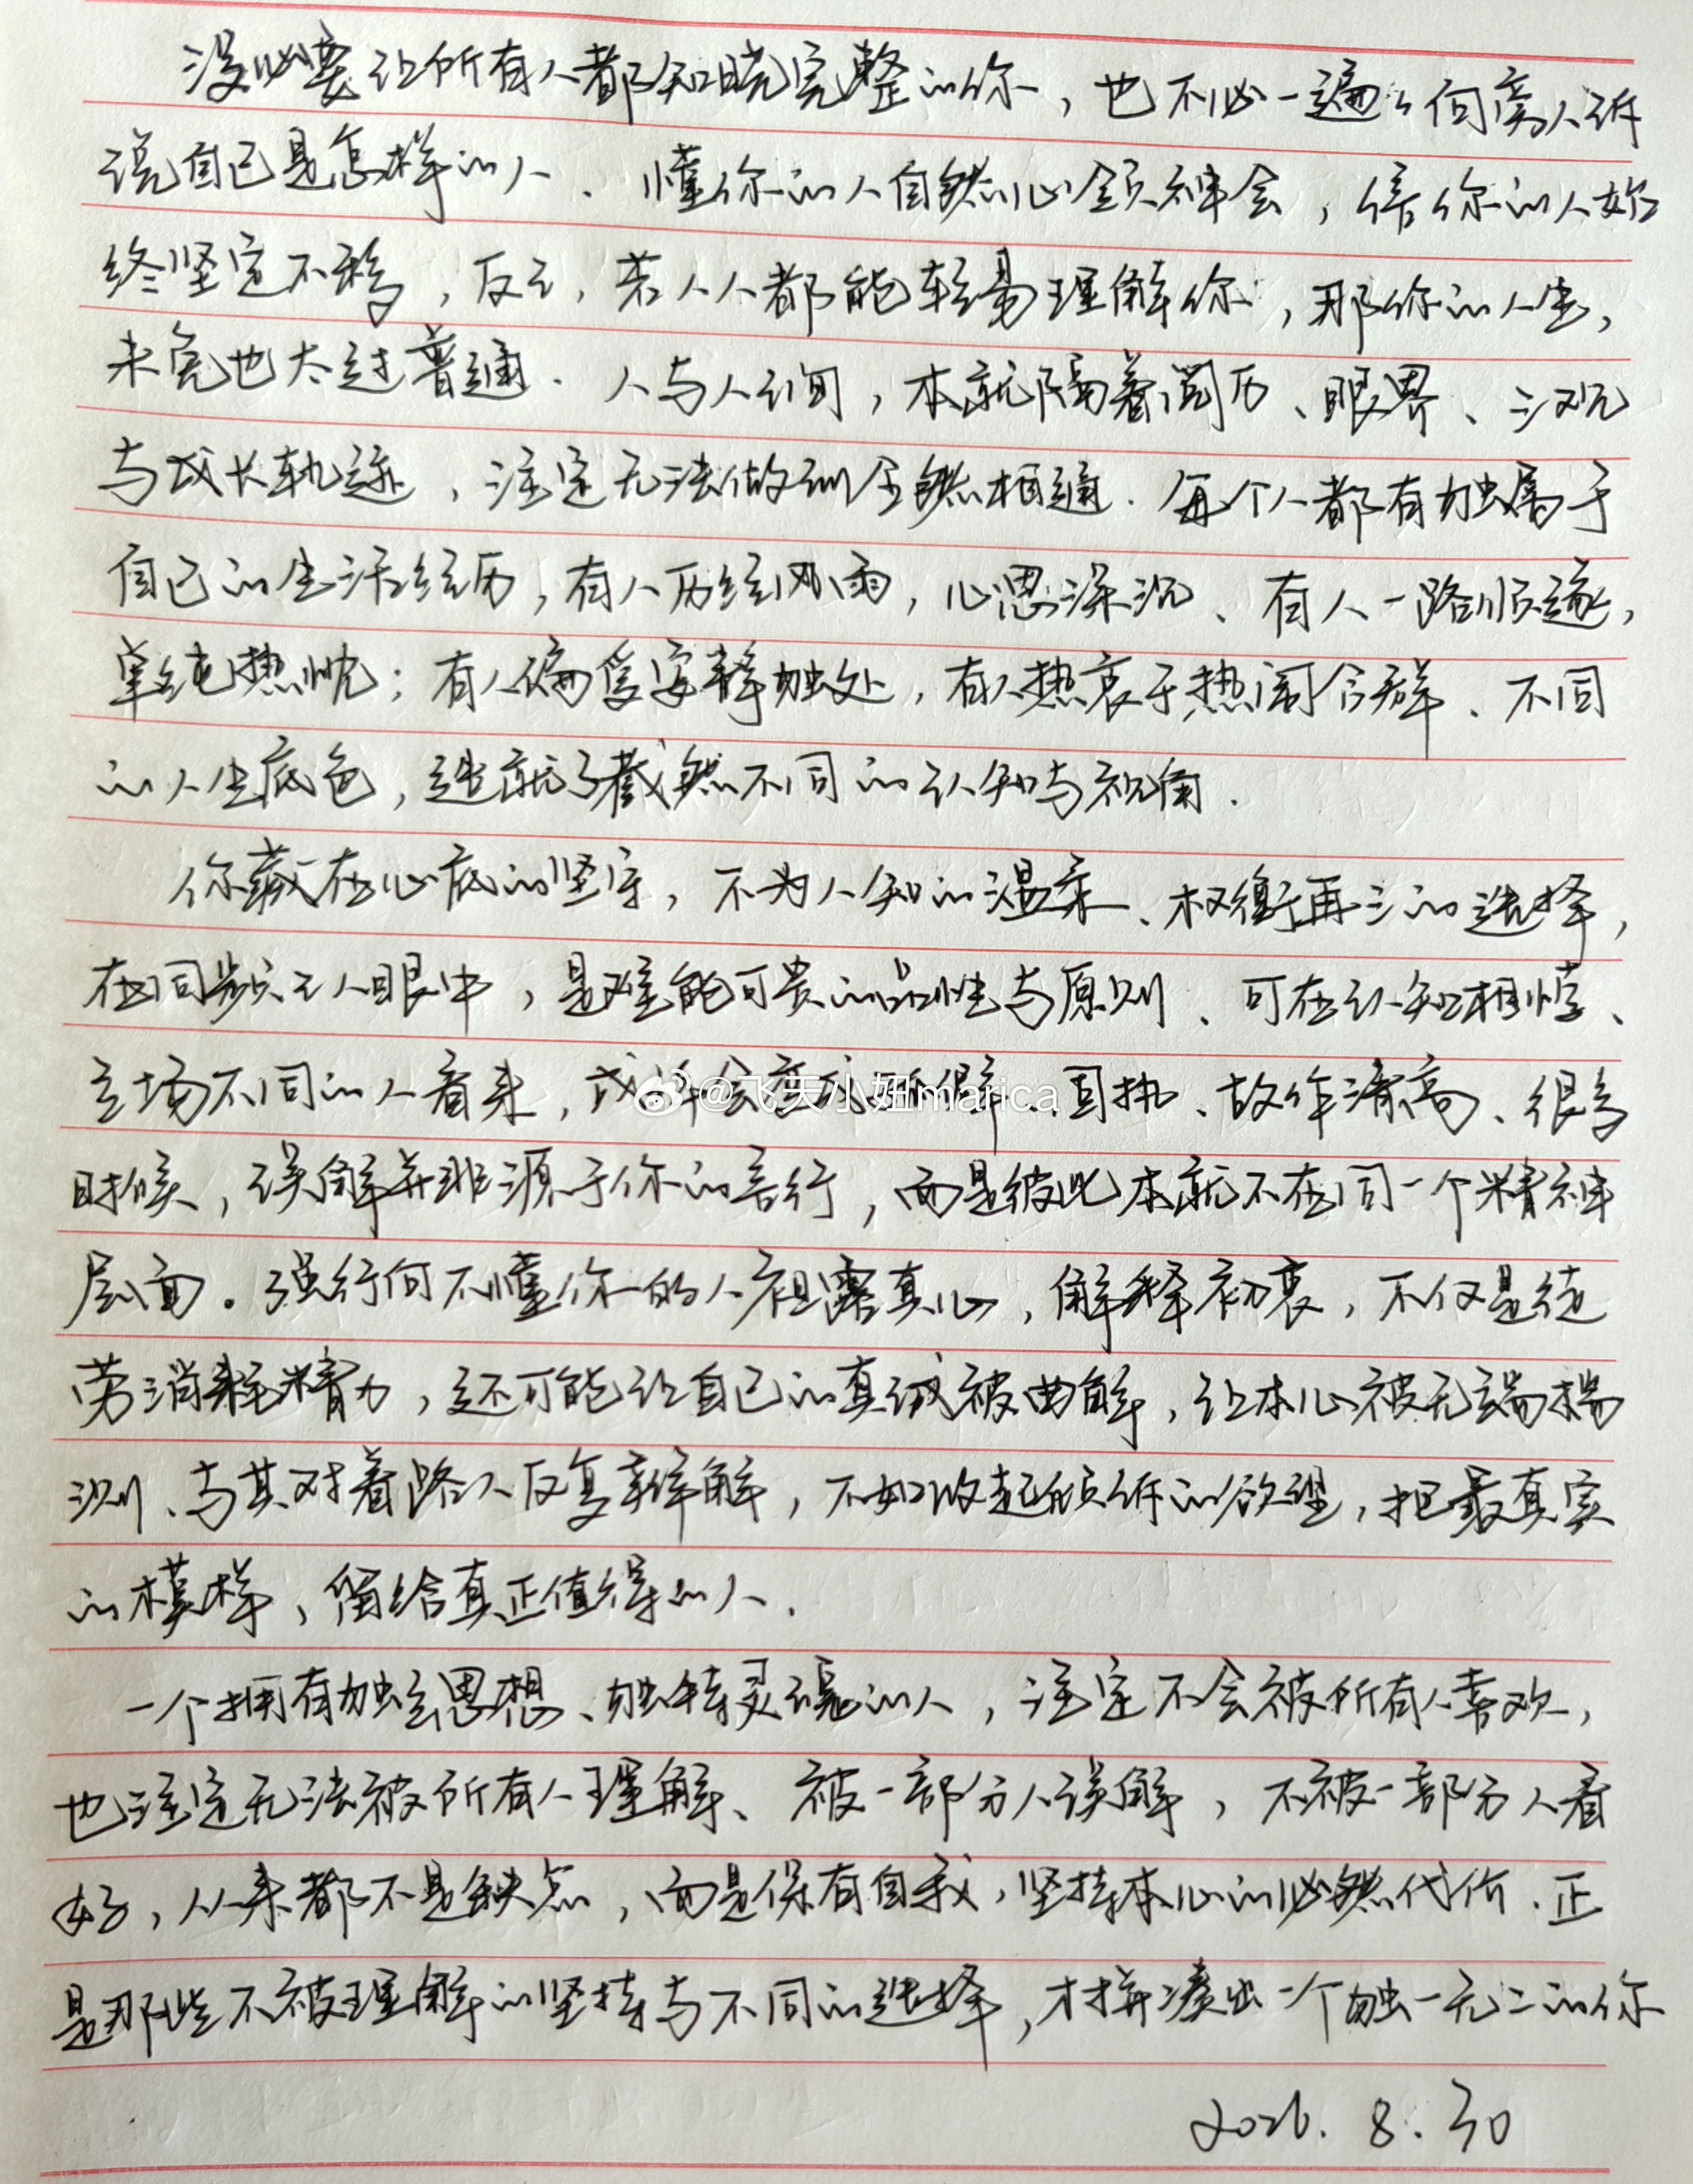 没必要让所有人都知晓完整的你，也不必一遍々向旁人诉
说自己是怎样的人、懂你的人自然心领神会，信你的人始
终坚定不移，反之，若人人都能轻易理解你，那你的人生，
未免也太过普通．人与人之间，本就隔着阅历、眼界、三观
与成长轨迹，注定无法做到全然相通．每个人都有独属于
自己的生活经历，有人历经风雨，心思深沉、有人一路顺遂，
单纯热忱；有人偏爱安静独处，有人热衷于热闹合群、不同
的人生底色，造就了截然不同的认知与视角．
你藏在心底的坚守，不为人知的温柔、权衡再三的选择，
在同频之人眼中，是难能可贵的品性与原则、可在认知相悖、
立场不同的人看来，或许会变成 固执、故作清高、很多
@飞天小妞marica
时候，误解并非源于你的言行，而是彼此本就不在同一个精神
层面。强行向不懂你的人袒露真心，解释初衷，不仅是徒
劳消耗精力，还可能让自己的真诚被曲解，让本心被无端揣
测、与其对着路人反复辩解，不如收起倾诉的欲望，把最真实
的模样，留给真正值得的人．
一个拥有独立思想、独特灵魂的人，注定不会被所有人喜欢，
也注定无法被所有人理解、被一部分人误解，不被一部分人看
好，从来都不是缺点，而是保有自我，坚持本心的必然代价．正
是那些不被理解的坚持与不同的选择，才拼凑出一个独一无二的你
2026．8．30